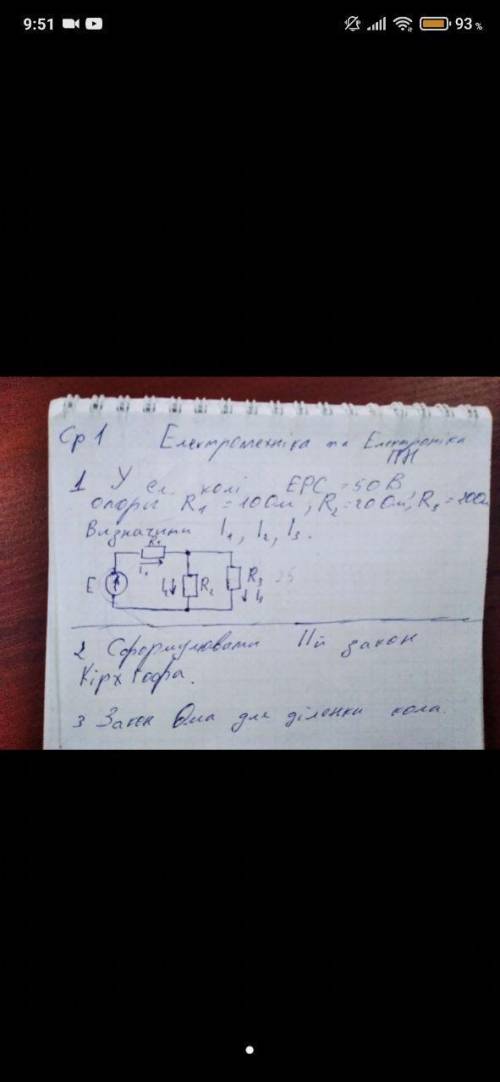 9:51 93%
Ср 1 Електротехніка та Електроніка
ПТН
1 У ел. колі ЕРС = 50 В
опори R1 = 10 Ом, R2 = 20 Ом, R3 =
Визначити I1, I2, I3.
R1
I1
E R2 R3 25
2 Сформулювати IIй закон
Кірхгофа.
3 Закон Ома для ділянки кола.